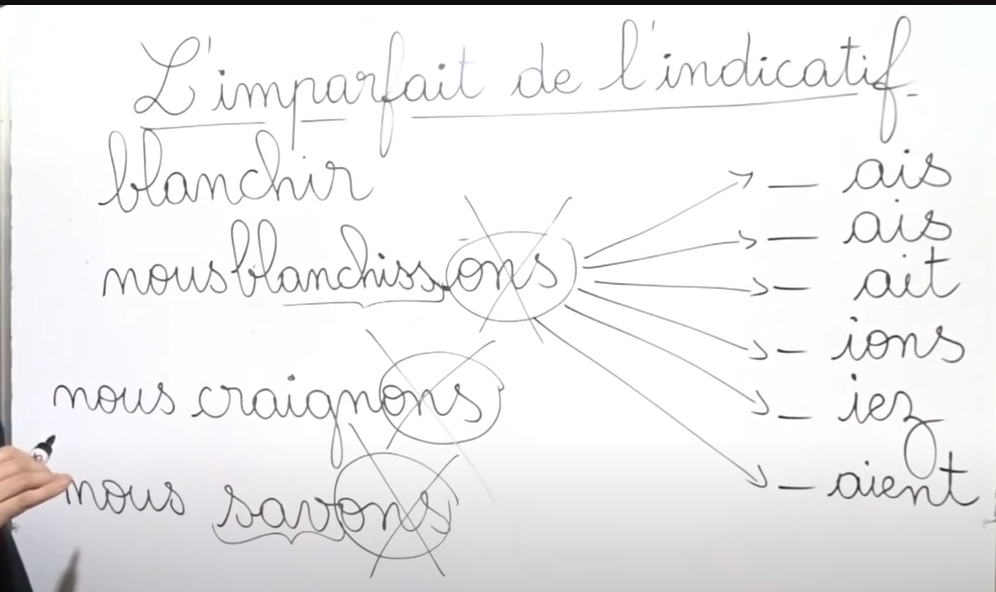 L'imparfait de l'indicatif
blanchir
nous blanchissons
nous craignons
nous savons
— ais
— ais
— ait
— ions
— iez
— aient